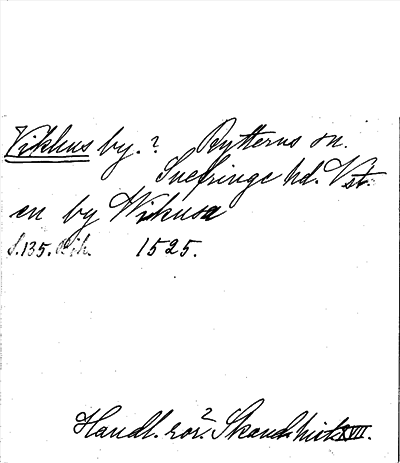 Vikhus by.? Rytterns sn.
Snefringe hd. Vstm.
en by Wikusa
s.135. 1525.
Handl. rör? Skand. hist. XVII.